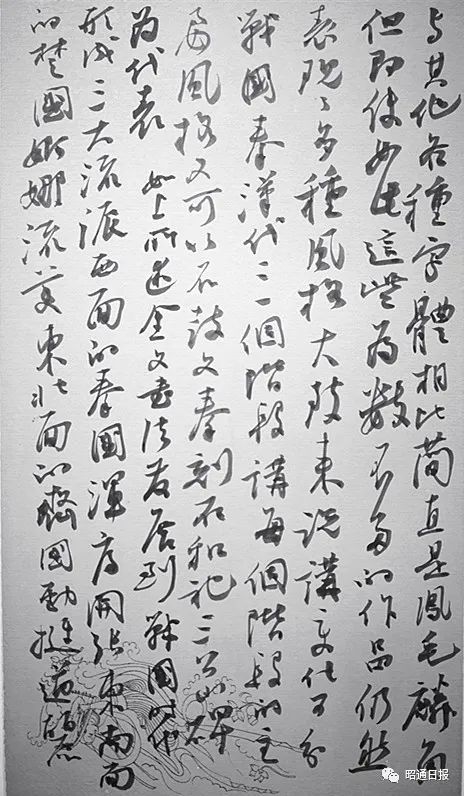 与其他各種字體相比简直是鳳毛麟角
但即使如此這些为數不多的作品仍然
表现了多種風格大致来说講变化可分
戰國秦漢代三個階段講每個階段的主
要風格又可以石鼓文秦刻石和祀三公山碑
为代表 如上所述金文書法發展到戰國時代
形成三大流派西面的秦國渾厚開張東南面
的楚國婀娜流美東北面的齊國勁挺遒
昭通日报